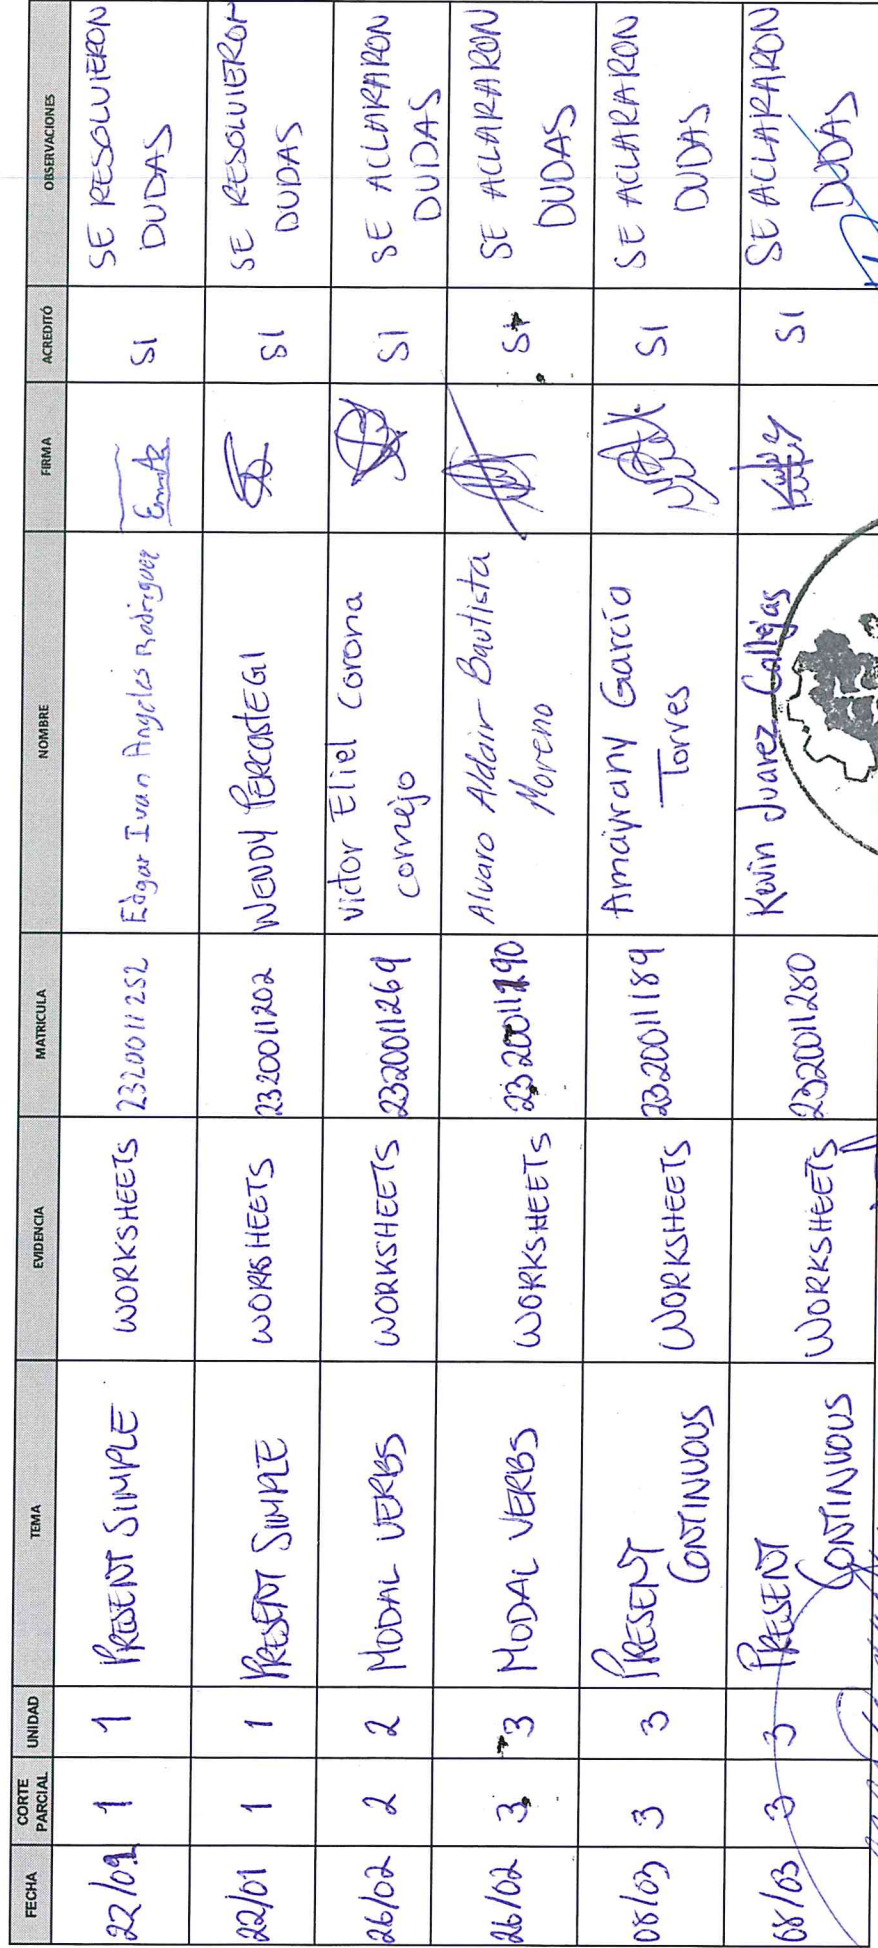 FECHA CORTE PARCIAL UNIDAD TEMA EVIDENCIA MATRICULA NOMBRE FIRMA ACREDITÓ OBSERVACIONES
22/01 1 1 PRESENT SIMPLE WORKSHEETS 2320011252 Edgar Ivan Angeles Rodriguez SI SE RESOLVIERON
DUDAS
22/01 1 1 PRESENT SIMPLE WORKSHEETS 2320011202 WENDY PERCASTEGI SI SE RESOLVIERON
DUDAS
26/02 2 2 MODAL VERBS WORKSHEETS 2320011269 Victor Eliel Corona
cornejo SI SE ACLARARON
DUDAS
26/02 3 3 MODAL VERBS WORKSHEETS Alvaro Aldair Bautista
Moreno SI SE ACLARARON
DUDAS
08/03 3 3 PRESENT
CONTINUOUS WORKSHEETS 2320011189 Amayrany García
Torres SI SE ACLARARON
DUDAS
08/03 3 3 PRESENT
CONTINUOUS WORKSHEETS 2320011280 Kevin Juarez Callejas Kevin SI SE ACLARARON
DUDAS